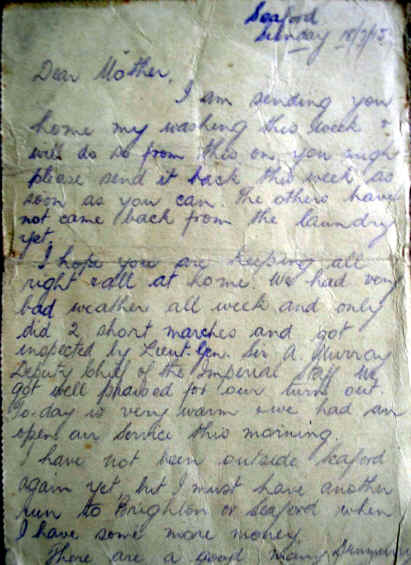 Seaford
Sunday 18/7/15
Dear Mother,
I am sending you
home my washing this week &
will do so from this on, you might
please send it back this week as
soon as you can. The others have
not came back from the laundry
yet.
I hope you are keeping all
right & all at home. We had very
bad weather all week and only
did 2 short marches and got
inspected by Lieut. Gen. Sir A. Murray
Deputy Chief of the Imperial Staff We
got well praised for our turn out.
To-day is very warm & we had an
open air service this morning.
I have not been outside Seaford
again yet, but I must have another
run to Brighton or Seaford when
I have some more money.
There are a good many